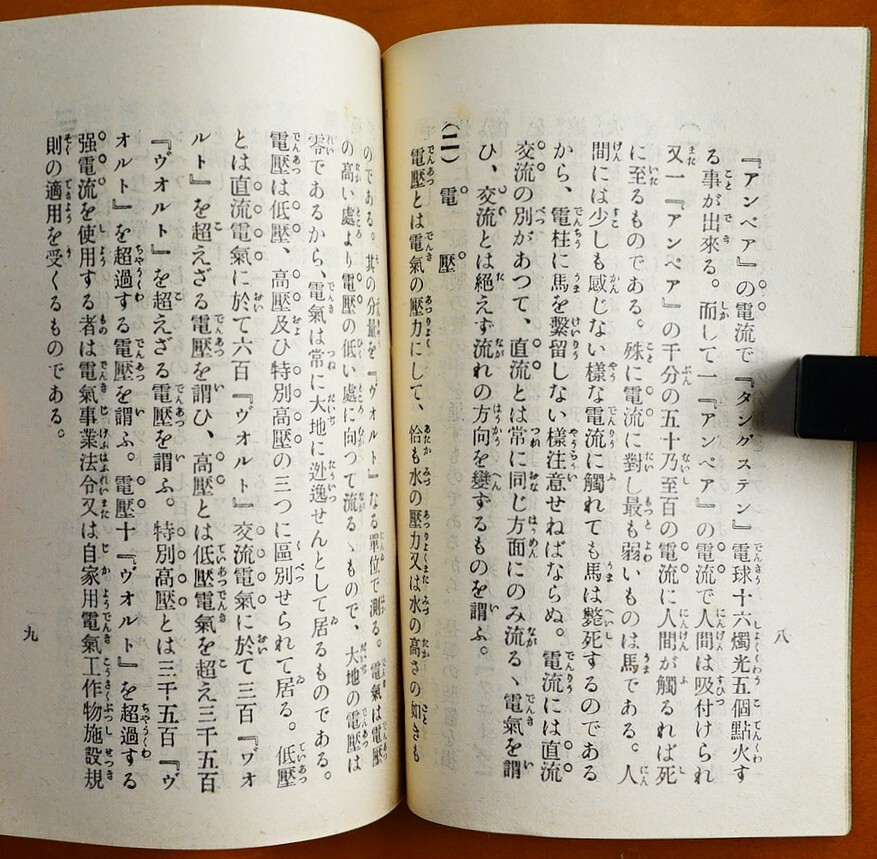 『アンペア』の電流で『タングステン』電球十六燭光五個點火す
る事が出來る。而して一『アンペア』の電流で人間は吸付けられ
又一『アンペア』の千分の五十乃至百の電流に人間が觸るれば死
に至るものである。殊に電流に對し最も弱いものは馬である。人
間には少しも感じない樣な電流に觸れても馬は斃死するのである
から、電柱に馬を繫留しない樣注意せねばならぬ。電流には直流
交流の別があつて、直流とは常に同じ方面にのみ流るゝ電氣を謂
ひ、交流とは絕えず流れの方向を變するものを謂ふ。
(二) 電壓
電壓とは電氣の壓力にして、恰も水の壓力又は水の高さの如きも
八
のである。其の分量を『ヴオルト』なる單位で測る。電氣は電壓
の高い處より電壓の低い處に向つて流るゝもので、大地の電壓は
零であるから、電氣は常に大地に逃逸せんとして居るものである。
電壓は低壓、高壓及ひ特別高壓の三つに區別せられて居る。低壓
とは直流電氣に於て六百『ヴオルト』交流電氣に於て三百『ヴオ
ルト』を超えざる電壓を謂ひ、高壓とは低壓電氣を超え三千五百
『ヴオルト』を超えざる電壓を謂ふ。特別高壓とは三千五百『ヴ
オルト』を超過する電壓を謂ふ。電壓十『ヴオルト』を超過する
强電流を使用する者は電氣事業法令又は自家用電氣工作物施設規
則の適用を受くるものである。
九